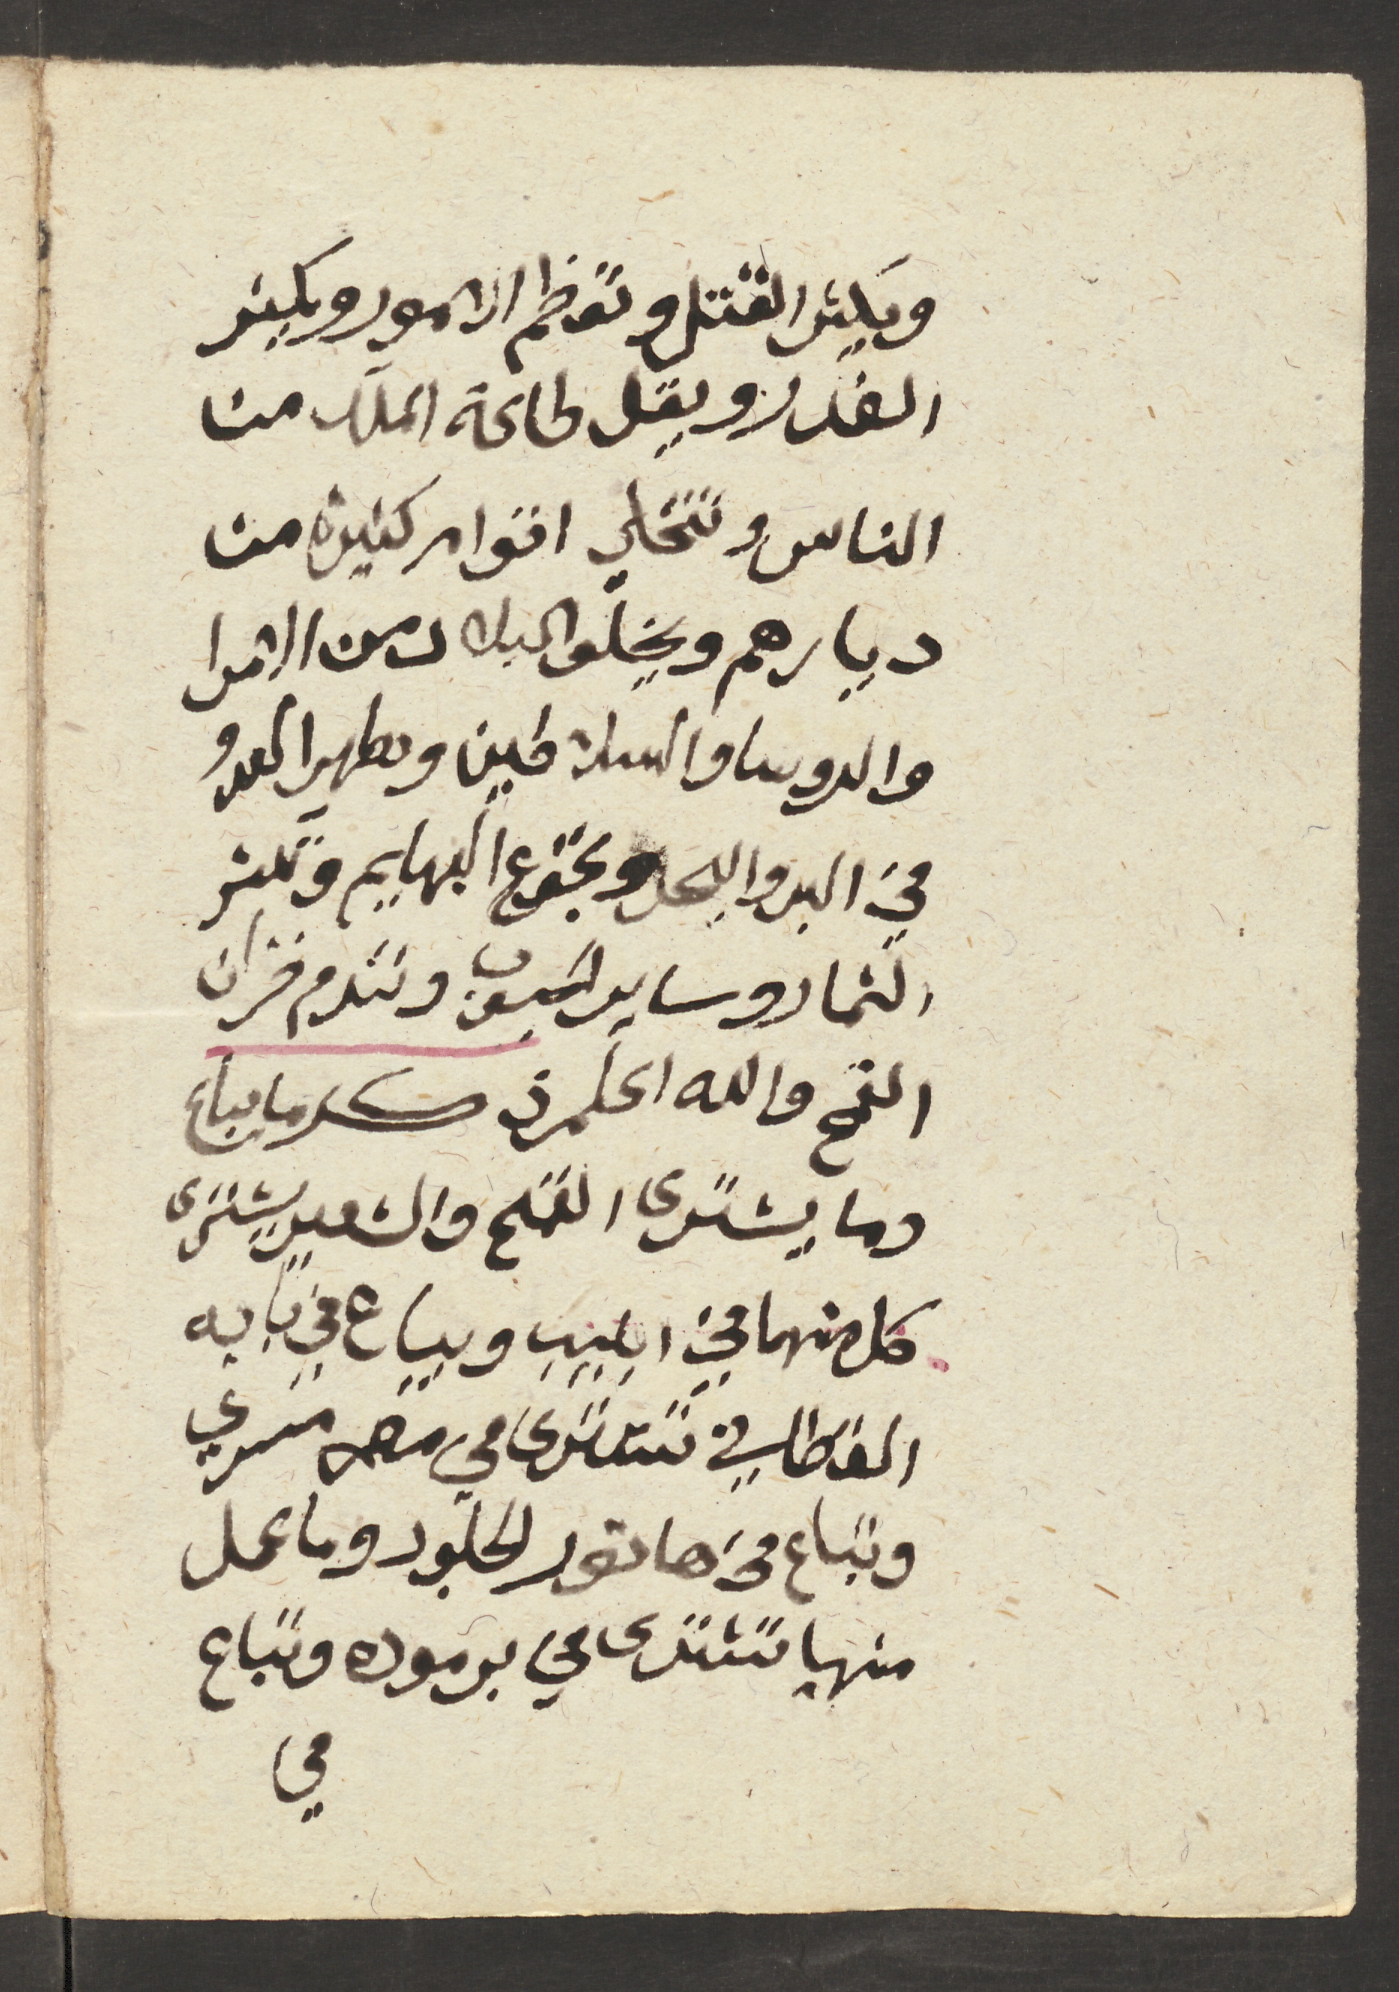 ويكثر القتل وتعظم الامور ويكثر
الغدر ويقل طاعة الملك من
الناس وتتخلي اقوام كثيرة من
ديارهم ويخلوا البلاد من الامرا
والروسا والسلاطين ويظهر العدو
في البر والبحر وتجوع البهايم وتكثر
الثمار وساير الحبوب وتندم خزان
القمح والله اعلم ذكر ما يباع
وما يشترى القمح والشعير يشترى
كل منهما في ابيب ويباع في بابه
القطاني تشترى في مصر مسري
وتباع في هاتور الجلود وما عمل
منها يشترى في برموده وتباع
في